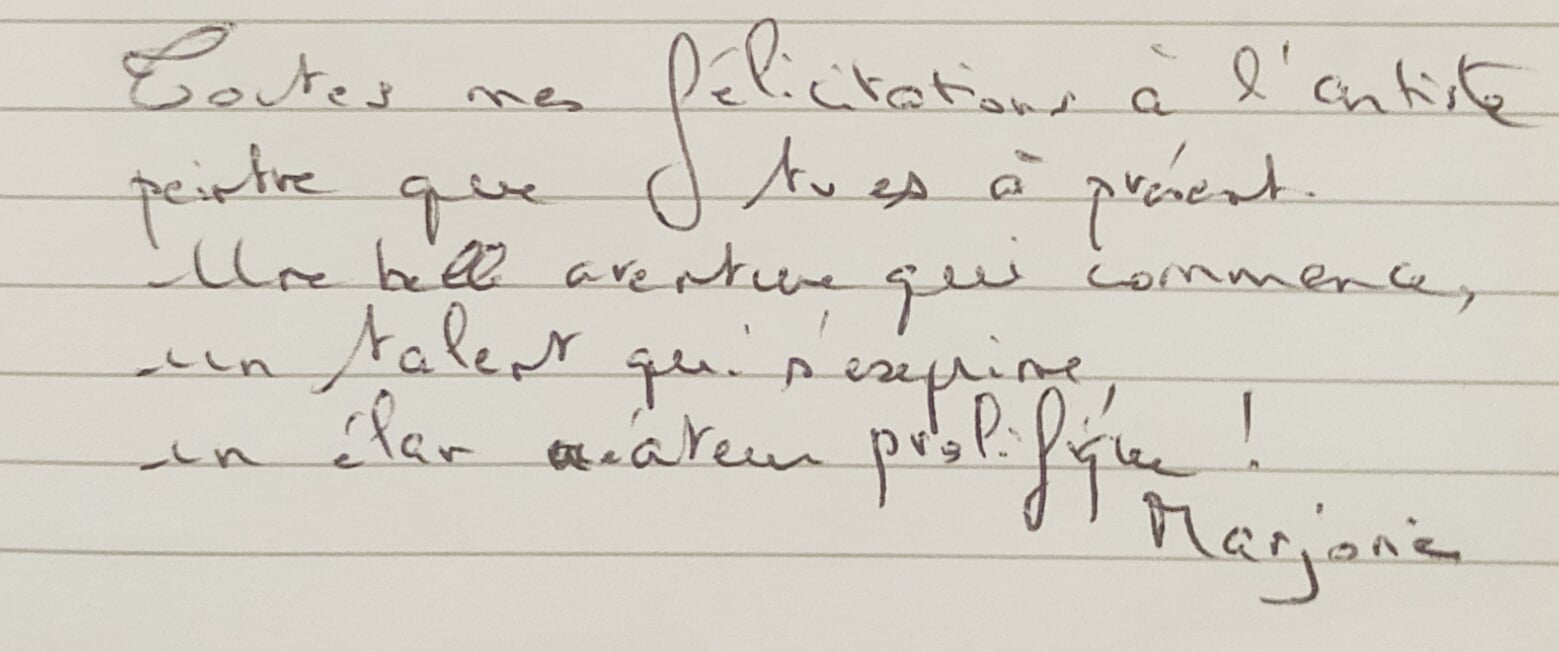 Toutes mes félicitations à l'artiste
peintre que tu es à présent.
Une belle aventure qui commence,
un talent qui s'exprime,
un élan créateur prolifique !
Marjorie